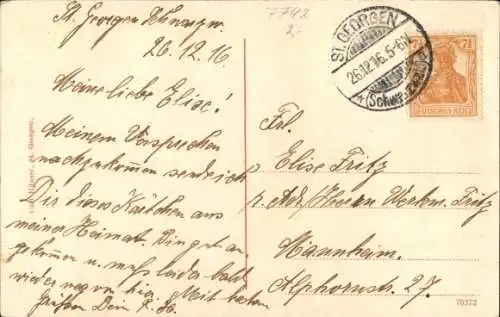 St. Georgen Schwarzw.
26.12.16
Meine liebe Elise!
Meinem Versprechen
nachgekommen sende ich
Dir dieses Kärtchen aus
meiner Heimat. Bin gut an-
gekommen u. muß leider bald
wieder weg von hier. Mit besten
Grüßen Dein
7742
2,-
ST. GEORGEN
26.12.16. 5-6N
(Schwarzwald)
7½ 7½
DEUTSCHES REICH
Frl.
Elise Fritz
z. Adr. Herrn Werkm. Fritz
Mannheim.
Alphornstr. 27.
St. Georgen.
70372